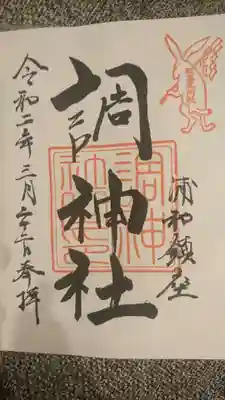 浦和鎮座
調神社
調神社
令和二年三月　　日奉拝